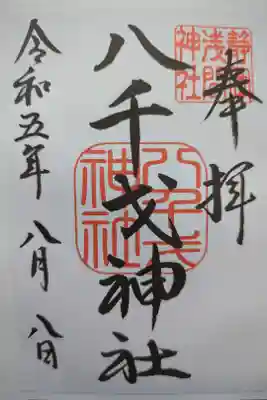 奉拝
静岡浅間神社
八千戈神社
八千戈神社
令和五年 八月 八日